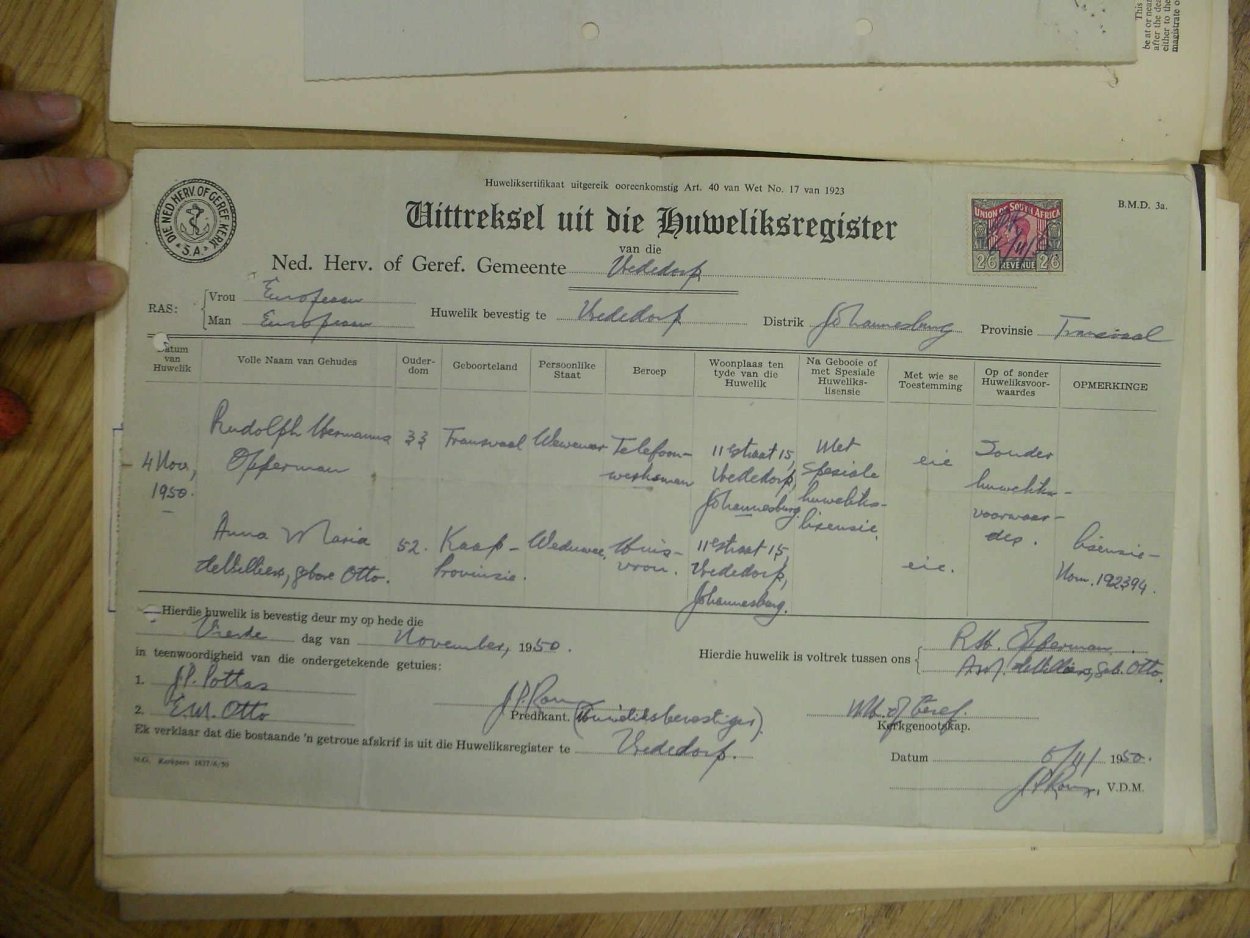 This
be at or near
after the dea
either to the
magistrate o
Huweliksertifikaat uitgereik ooreenkomstig Art. 40 van Wet No. 17 van 1923
B.M.D. 3a.
DIE NED. HERV. OF GEREF. KERK
S.A.
Uittreksel uit die Huweliksregister
van die
Ned. Herv. of Geref. Gemeente Vrededorp
UNION OF SOUTH AFRICA
2/6 REVENUE 2/6
RAS: Vrou European
Man European
Huwelik bevestig te Vrededorp Distrik Johannesburg Provinsie Transvaal
Datum van Huwelik
Volle Naam van Gehudes
Ouderdom
Geboorteland
Persoonlike Staat
Beroep
Woonplaas ten tyde van die Huwelik
Na Gebooie of met Spesiale Huwelikslisensie
Met wie se Toestemming
Op of sonder Huweliksvoorwaardes
OPMERKINGE
4 Nov., 1950.
Rudolph Hermanus Opperman
33
Transvaal
Wewenaar
Telefoonwerksman
11estraat 15, Vrededorp, Johannesburg.
Met spesiale huwelikslisensie.
eie
Sonder huweliksvoorwaardes.
Anna Maria deVilliers, gebore Otto.
52.
Kaap-Provinsie.
Weduwee.
Huisvrou.
11estraat 15, Vrededorp, Johannesburg.
eie.
lisensie-Nom. 192394.
Hierdie huwelik is bevestig deur my op hede die
Vierde dag van November, 1950.
in teenwoordigheid van die ondergetekende getuies:
Hierdie huwelik is voltrek tussen ons R.H. Opperman.
A.M. deVilliers, geb. Otto.
1. J.P. Pottas
2. E.M. Otto
Predikant. (Huweliksbevestiger).
Kerkgenootskap.
Ek verklaar dat die bostaande 'n getroue afskrif is uit die Huweliksregister te Vrededorp.
Datum 6/11 1950.
V.D.M.
N.G. Kerkpers 1837/6/50